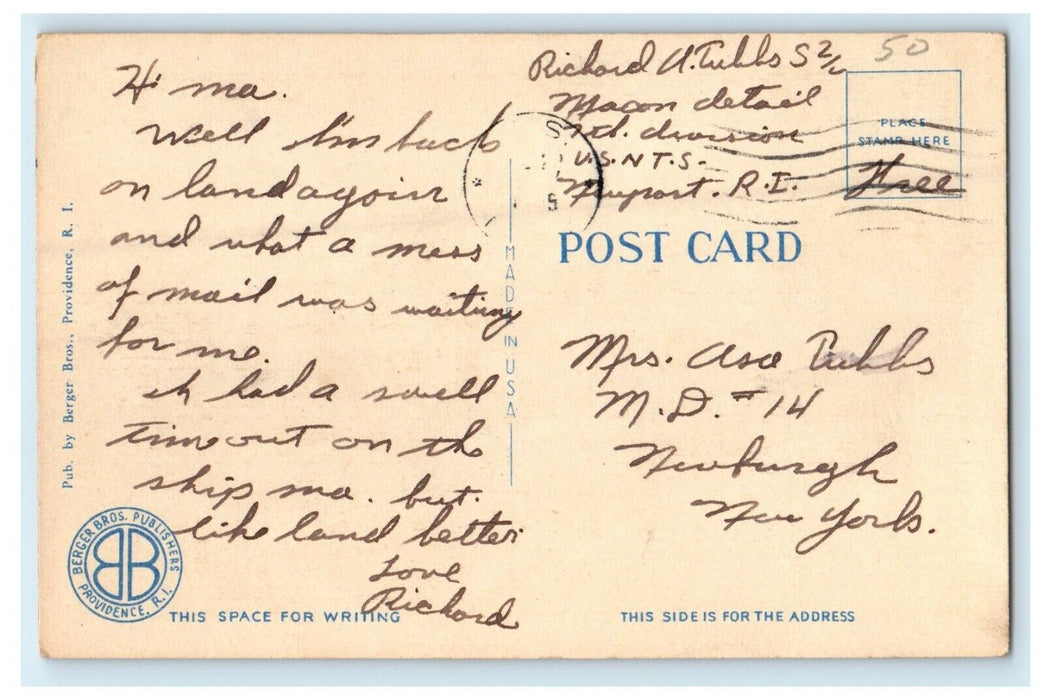 50
Richard A. Tubbs S 2/c
Macon detail
7th. division
U.S.N.T.S.
Newport. R.I.
PLACE
STAMP HERE
Free
Hi ma.
Well I'm back
on land again
and what a mess
of mail was waiting
for me.
I had a swell
time out on the
ship ma. but.
like land better
Love
Richard
Pub. by Berger Bros., Providence, R. I.
BERGER BROS. PUBLISHERS
BB
PROVIDENCE, R. I.
THIS SPACE FOR WRITING
MADE IN USA
POST CARD
Mrs. Asa Tubbs
M.D. # 14
Newburgh
New York.
THIS SIDE IS FOR THE ADDRESS